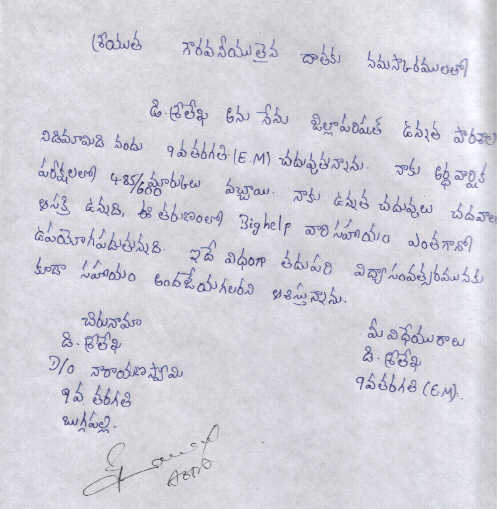 శ్రీయుత గౌరవనీయులైన దాతకు నమస్కారములతో
డి. శ్రీలేఖ అను నేను జిల్లాపరిషత్ ఉన్నత పాఠశాల
నిడిమామిడి నందు 9వ తరగతి (E.M) చదువుతున్నాను. నాకు అర్ధవార్షిక
పరీక్షలలో 485/600 మార్కులు వచ్చాయి. నాకు ఉన్నత చదువులు చదవాలని
ఆసక్తి ఉన్నది, ఈ తరుణంలో Bighelp వారి సహాయం ఎంతగానో
ఉపయోగపడుతున్నది. ఇదే విధంగా తదుపరి విద్యాసంవత్సరమునకు
కూడా సహాయం అందజేయగలరని ఆశిస్తున్నాను.
చిరునామా
డి. శ్రీలేఖ
D/o నారాయణస్వామి
9వ తరగతి
బుగ్గపల్లి.
మీ విధేయురాలు
డి. శ్రీలేఖ
9వ తరగతి (E.M).